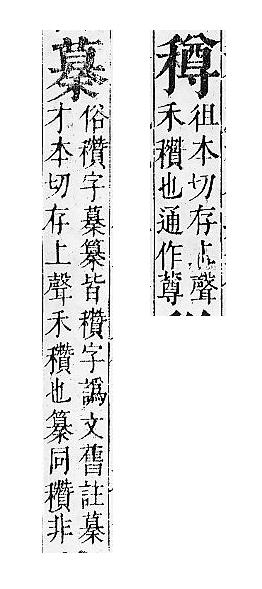 徂本切存上聲
禾穳也通作䔿
俗穳字皆穳字譌文舊註
才本切存上聲禾穳也同穳非